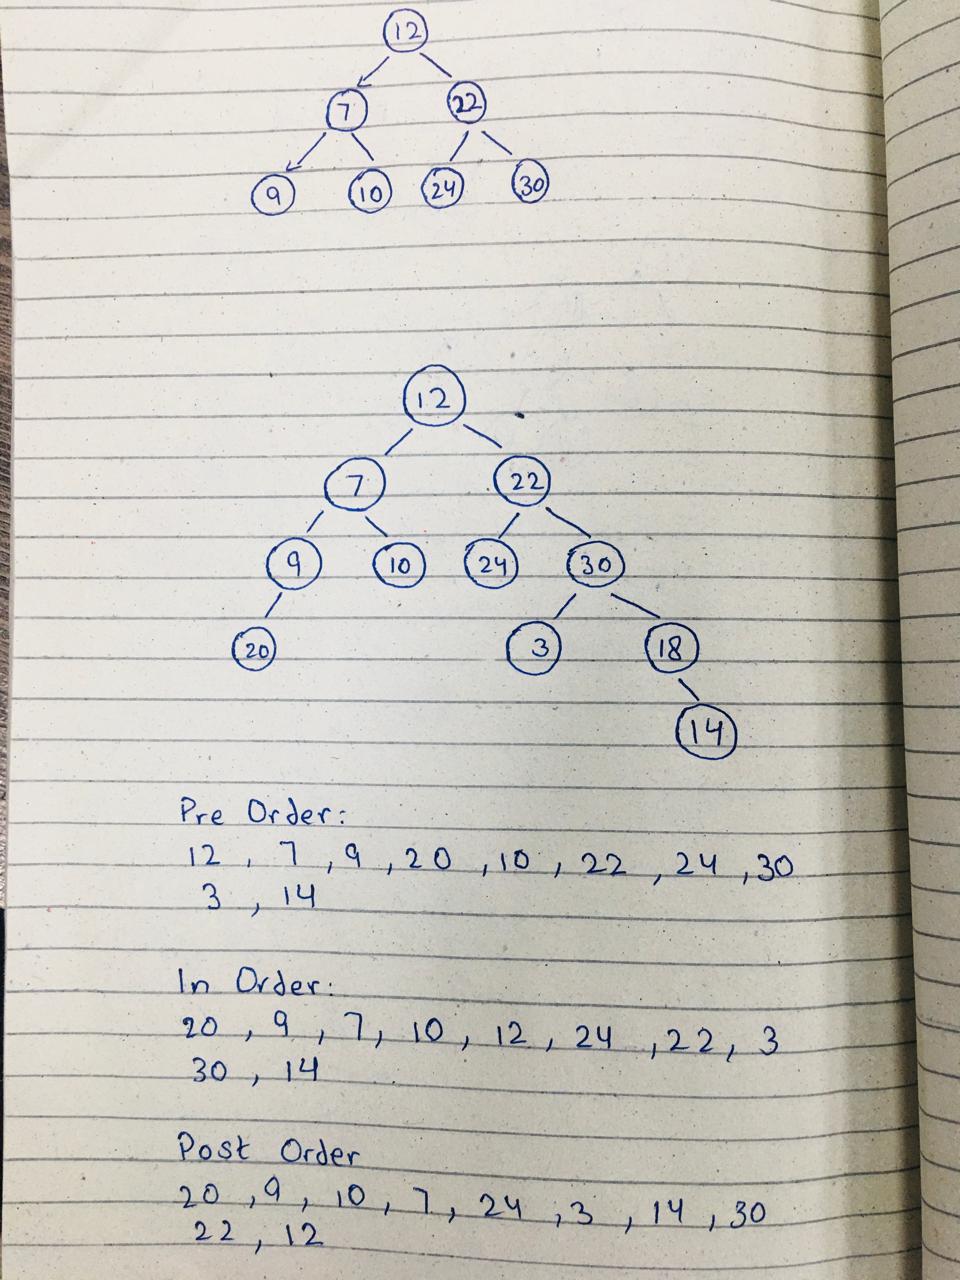 12
7 22
9 10 24 30
12
7 22
9 10 24 30
20 3 18
14
Pre Order:
12 , 7 , 9 , 20 , 10 , 22 , 24 , 30
3 , 14
In Order:
20 , 9 , 7 , 10 , 12 , 24 , 22 , 3
30 , 14
Post Order
20 , 9 , 10 , 7 , 24 , 3 , 14 , 30
22 , 12